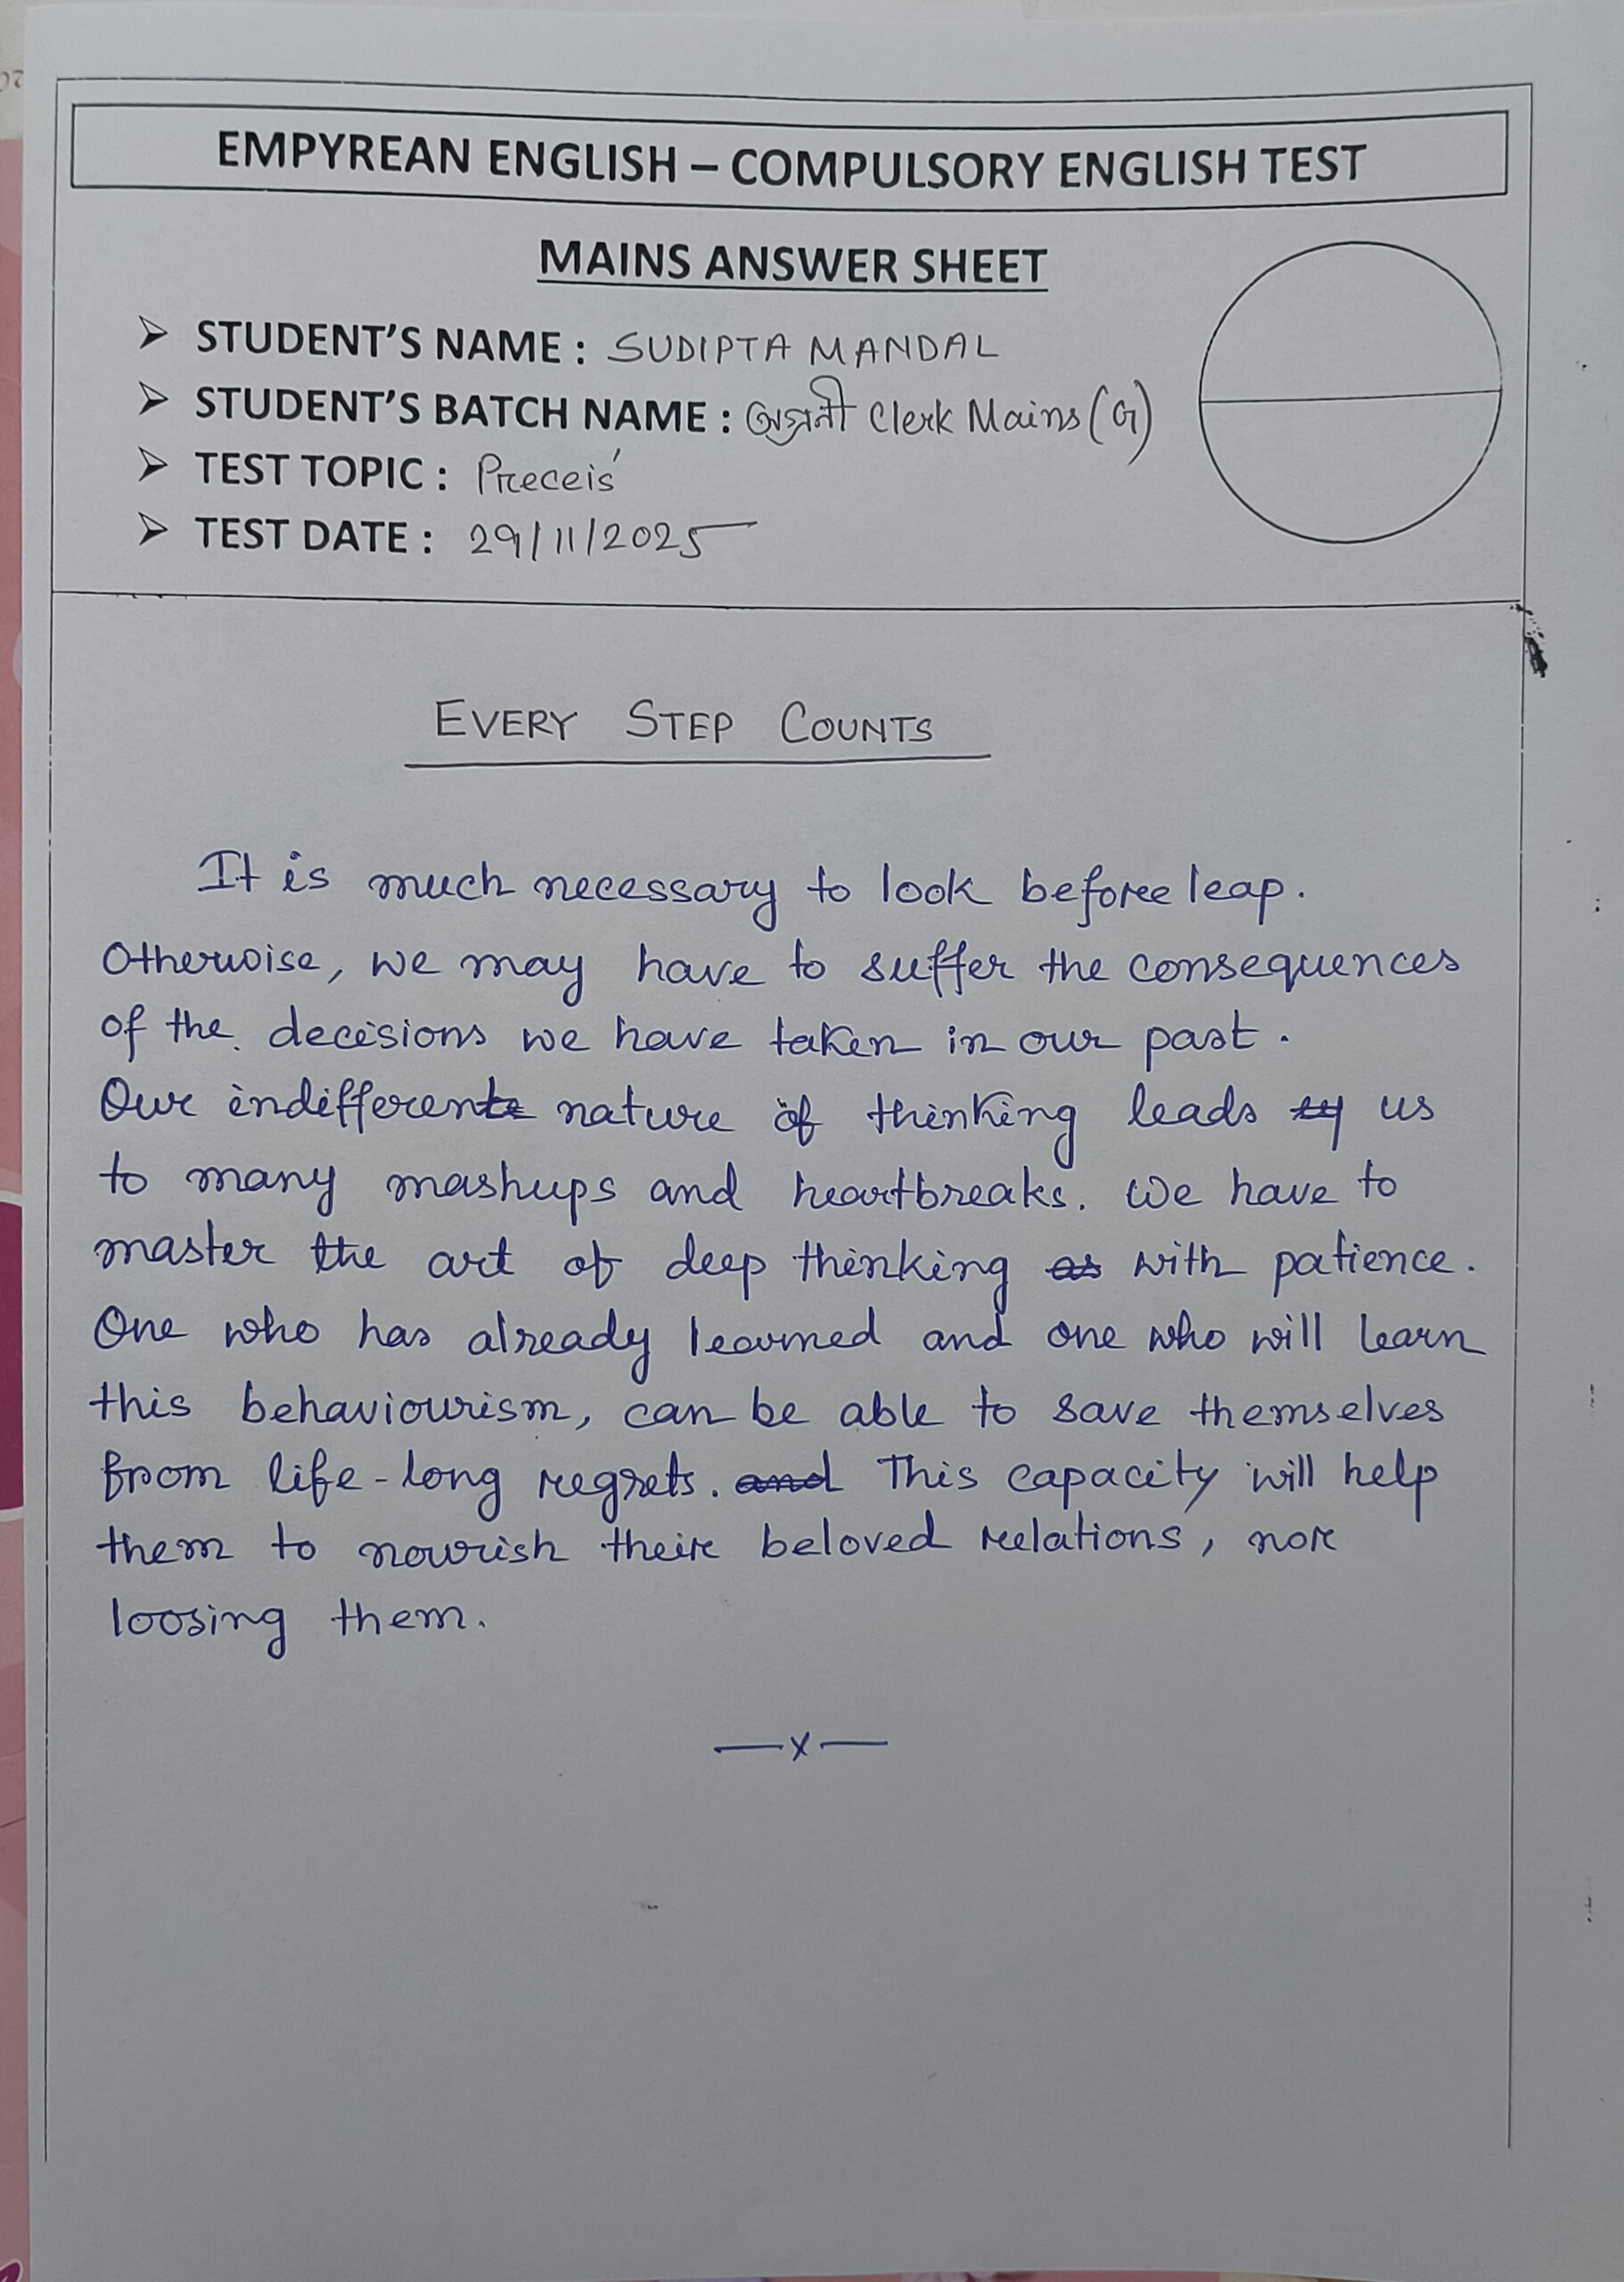 EMPYREAN ENGLISH – COMPULSORY ENGLISH TEST
MAINS ANSWER SHEET
➢ STUDENT'S NAME : SUDIPTA MANDAL
➢ STUDENT'S BATCH NAME : অগ্রনী Clerk Mains (G)
➢ TEST TOPIC : Preceis'
➢ TEST DATE : 29/11/2025
EVERY STEP COUNTS
It is much necessary to look before leap.
Otherwise, we may have to suffer the consequences
of the decisions we have taken in our past.
Our indifferent nature of thinking leads us
to many mashups and heartbreaks. We have to
master the art of deep thinking with patience.
One who has already learned and one who will learn
this behaviourism, can be able to save themselves
from life-long regrets. and This capacity will help
them to nourish their beloved relations, nor
loosing them.
—x—